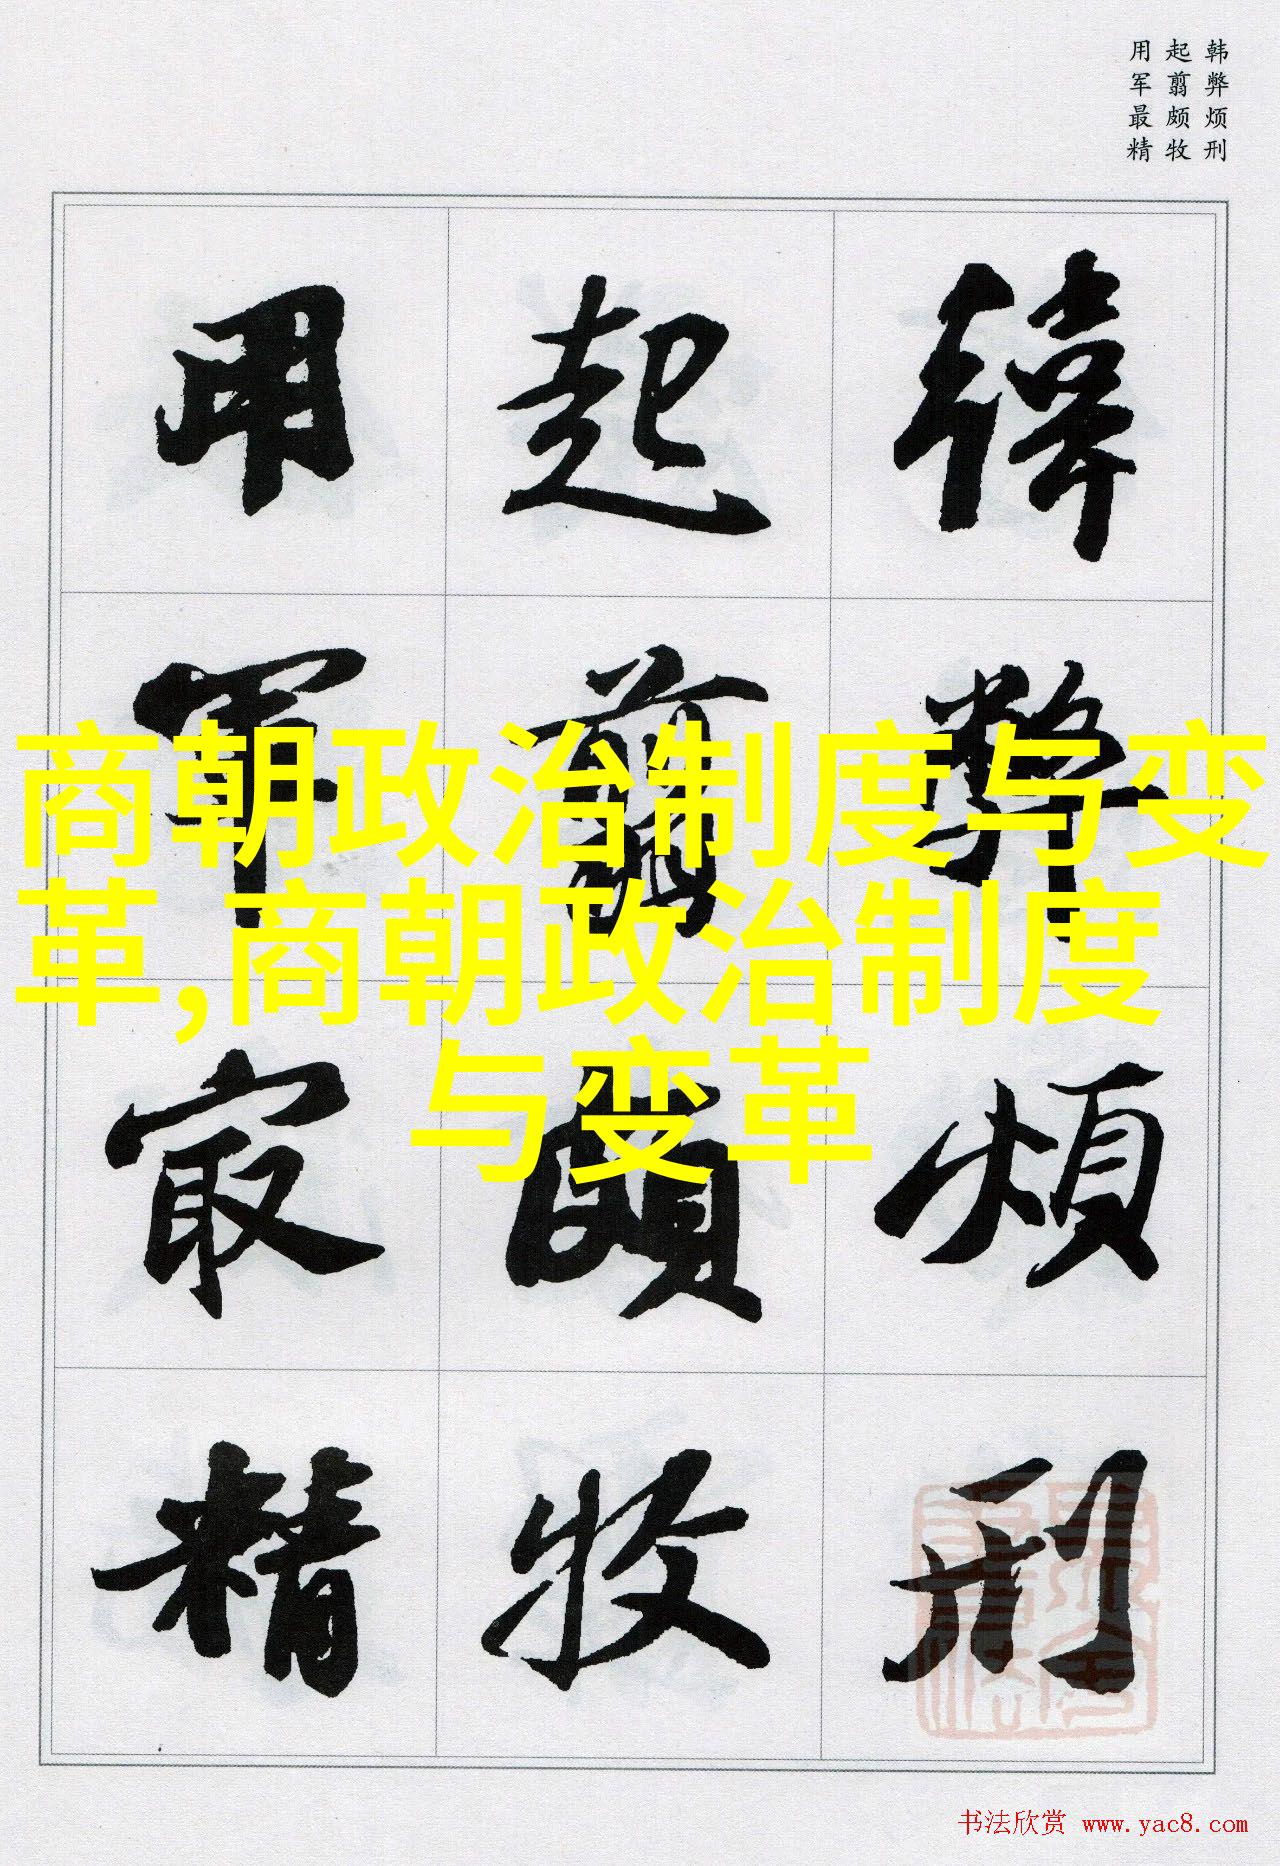 韩弊烦刑
起翦颇牧
用军最精
韩弊烦刑
起翦颇牧
用军最精
商朝政治制度与变
革,商朝政治制度
与变革
书法欣赏 www.yac8.com